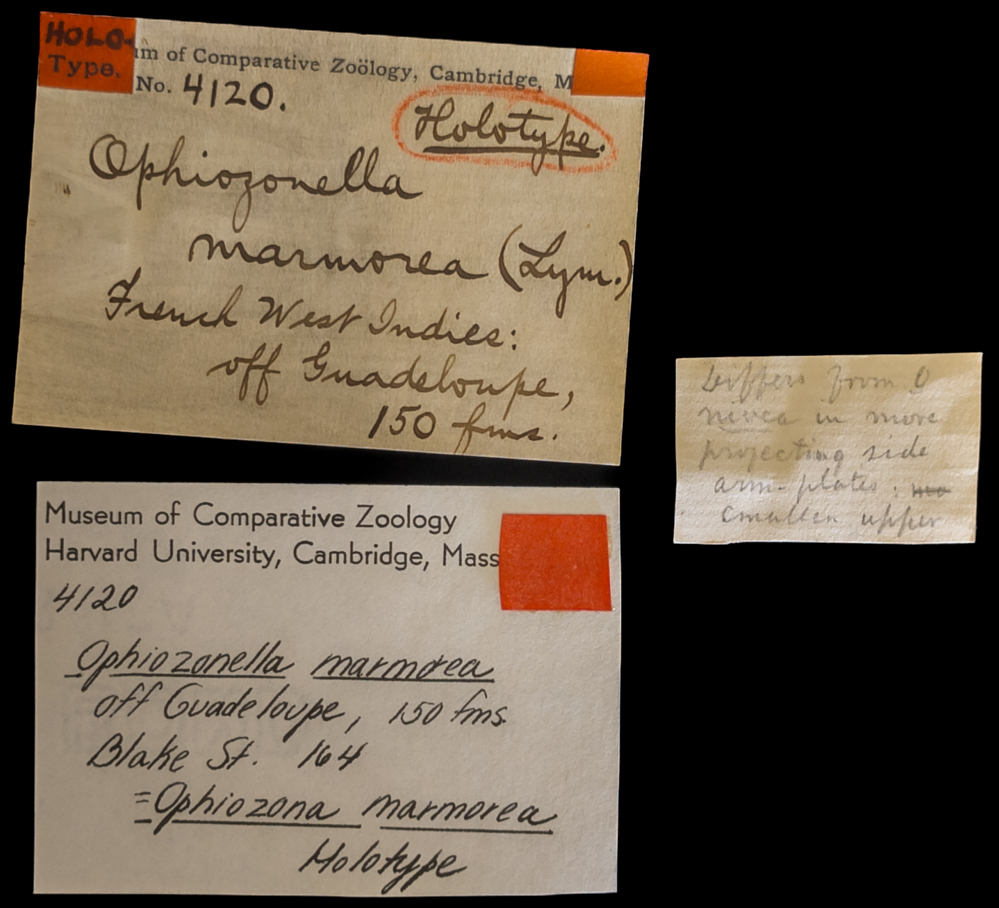 HOLO-
Type.
um of Comparative Zoölogy, Cambridge, M
No. 4120.
Holotype.
Ophiozonella
marmorea (Lym.)
French West Indies:
off Guadeloupe,
150 fms.
Differs from O
nivea in more
projecting side
arm-plates:
smaller upper
Museum of Comparative Zoology
Harvard University, Cambridge, Mass
4120
Ophiozonella marmorea
off Guadeloupe, 150 fms.
Blake St. 164
=Ophiozona marmorea
Holotype